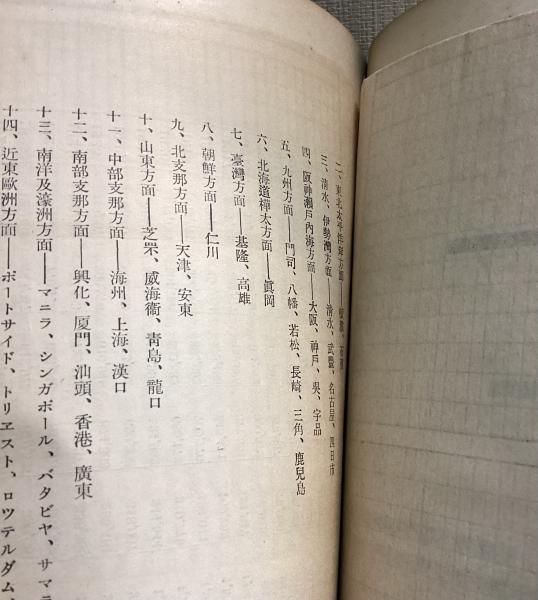 二、東北太平洋岸方面——
三、清水、伊勢灣方面　清水、武豐、名古屋、四日市
四、阪神瀨戶內海方面——大阪、神戶、吳、宇品
五、九州方面——門司、八幡、若松、長崎、三角、鹿兒島
六、北海道樺太方面——眞岡
七、臺灣方面——基隆、高雄
八、朝鮮方面——仁川
九、北支那方面——天津、安東
十、山東方面——芝罘、威海衞、靑島、龍口
十一、中部支那方面——海州、上海、漢口
十二、南部支那方面　興化、厦門、汕頭、香港、廣東
十三、南洋及濠洲方面——マニラ、シンガポール、バタビヤ、サマラ
十四、近東歐洲方面——ポートサイド、トリエスト、ロツテルダム、